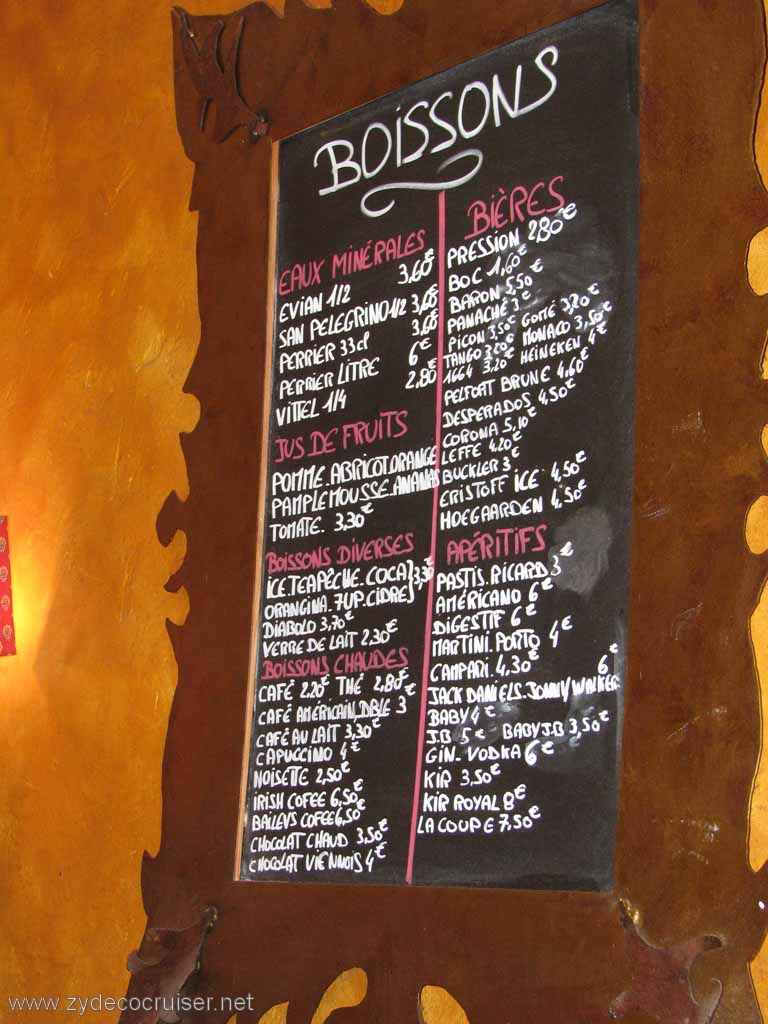 BOISSONS
EAUX MINÉRALES
EVIAN 1/2 3,60€
SAN PELEGRINO 1/2 3,60€
PERRIER 33cl 3,60€
PERRIER LITRE 6€
VITTEL 1/4 2,80€
JUS DE FRUITS
POMME.ABRICOT.ORANGE
PAMPLEMOUSSE.ANANAS
TOMATE. 3,30€
BOISSONS DIVERSES
ICE.TEA PÊCHE.COCA
ORANGINA.7UP.CIDRE} 3,30€
DIABOLO 3,70€
VERRE DE LAIT 2,30€
BOISSONS CHAUDES
CAFÉ 2,20€ THÉ 2,80€
CAFÉ AMÉRICAIN.DBLE 3€
CAFÉ AU LAIT 3,30€
CAPUCCINO 4€
NOISETTE 2,50€
IRISH COFEE 6,50€
BAILEYS COFEE 6,50€
CHOCOLAT CHAUD 3,50€
CHOCOLAT VIENNOIS 4€
BIÈRES
PRESSION 2,80€
BOC 1,60€
BARON 5,50€
PANACHÉ 3€
PICON 3,50€ GOMÉ 3,20€
TANGO 3,20€ MONACO 3,50€
1664 3,20€ HEINEKEN 4€
PELFORT BRUNE 4,60€
DESPERADOS 4,50€
CORONA 5,10€
LEFFE 4,20€
BUCKLER 3€
ERISTOFF ICE 4,50€
HOEGAARDEN 4,50€
APÉRITIFS
PASTIS.RICARD 3€
AMÉRICANO 6€
DIGESTIF 6€
MARTINI.PORTO 4€
CAMPARI.4,30€
JACK DANIELS.JONNY WALKER 6€
BABY 4€
J.B 5€ BABY J.B 3,50€
GIN.VODKA 6€
KIR 3,50€
KIR ROYAL 8€
LA COUPE 7,50€
www.zydecocruiser.net